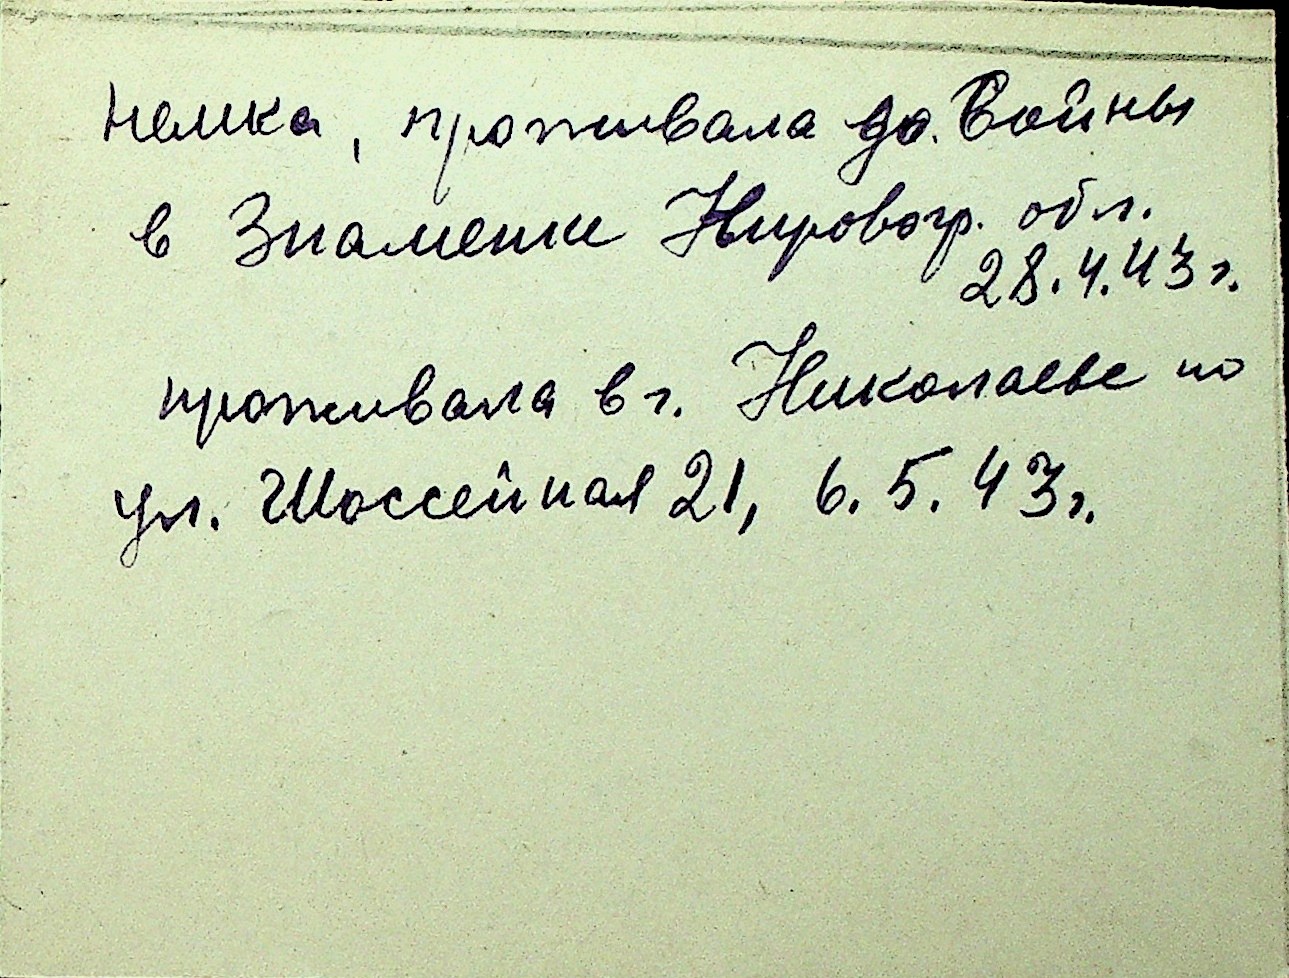 немка, проживала до войны
в Знаменке Кировогр. обл.
28.4.43 г.
проживала в г. Николаеве по
ул. Шоссейная 21, 6.5.43 г.